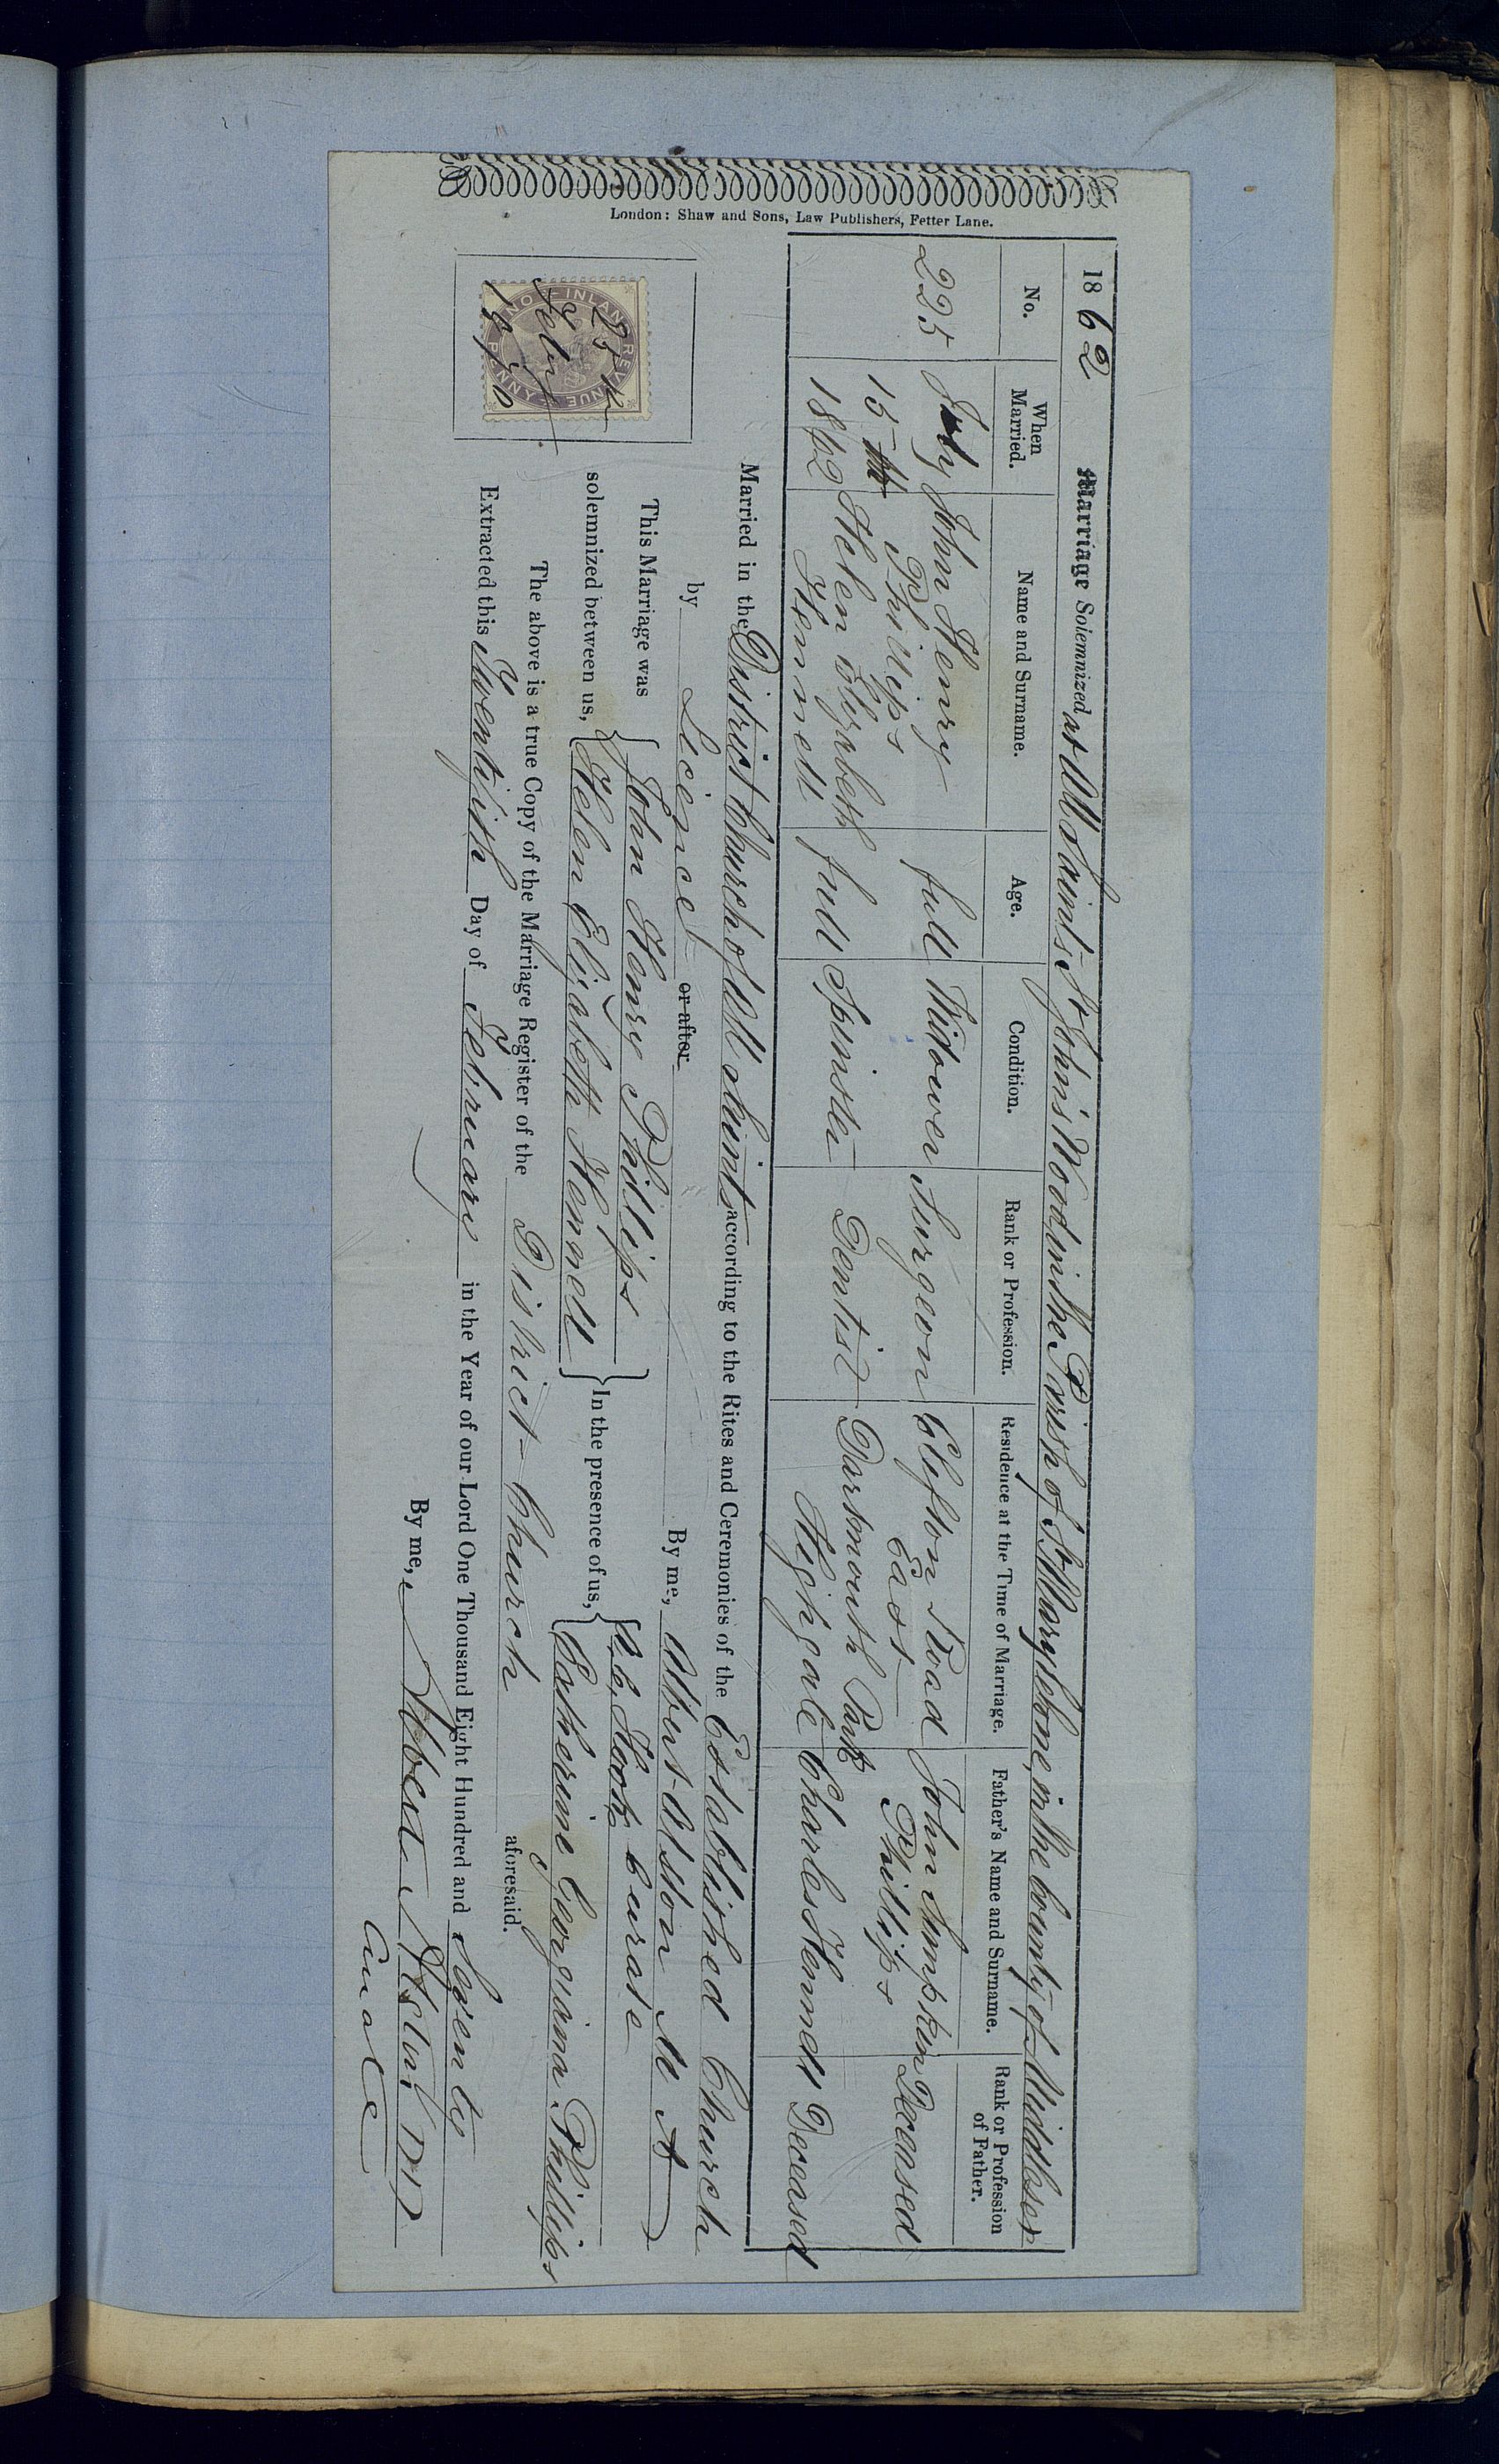 London: Shaw and Sons, Law Publishers, Fetter Lane.
1862 Marriage Solemnized at All Saints St John's Wood in the Parish of St Marylebone, in the County of Middlesex
No. When Married. Name and Surname. Age. Condition. Rank or Profession. Residence at the Time of Marriage. Father's Name and Surname. Rank or Profession of Father.
225 July John Henry full Widower Surgeon Clifton Road John Simpkin Deceased
15th Phillips East Phillips
1862 Helen Elizabeth full Spinster Dentist Dartmouth Park
Hemmell Highgate Charles Hemmell Deceased
Married in the District Church of All Saints according to the Rites and Ceremonies of the Established Church
by Licence or after By me, Albert Alston M A
This Marriage was John Henry Phillips Curate
solemnized between us, Helen Elizabeth Hemmell In the presence of us, Catherine Georgiana Phillips
The above is a true Copy of the Marriage Register of the District Church aforesaid.
Extracted this Twentyfifth Day of February in the Year of our Lord One Thousand Eight Hundred and Seventy
By me,
Curate
INLAND REVENUE
ONE PENNY
25th
Feby
1870